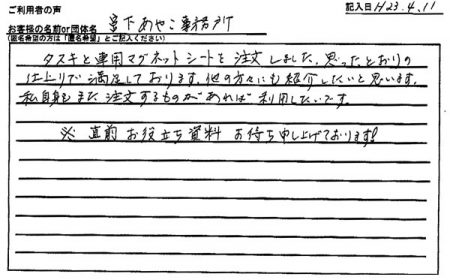 ご利用者の声
記入日 H23.4.11
お客様の名前or団体名 宮下あやこ事務所
(匿名希望の方は「匿名希望」とご記入ください)
タスキと車用マグネットシートを注文しました。思ったとおりの
仕上りで満足しております。他の方々にも紹介したいと思います。
私自身もまた注文するものがあれば利用したいです。
※ 直前お役立ち資料 お待ち申し上げております!